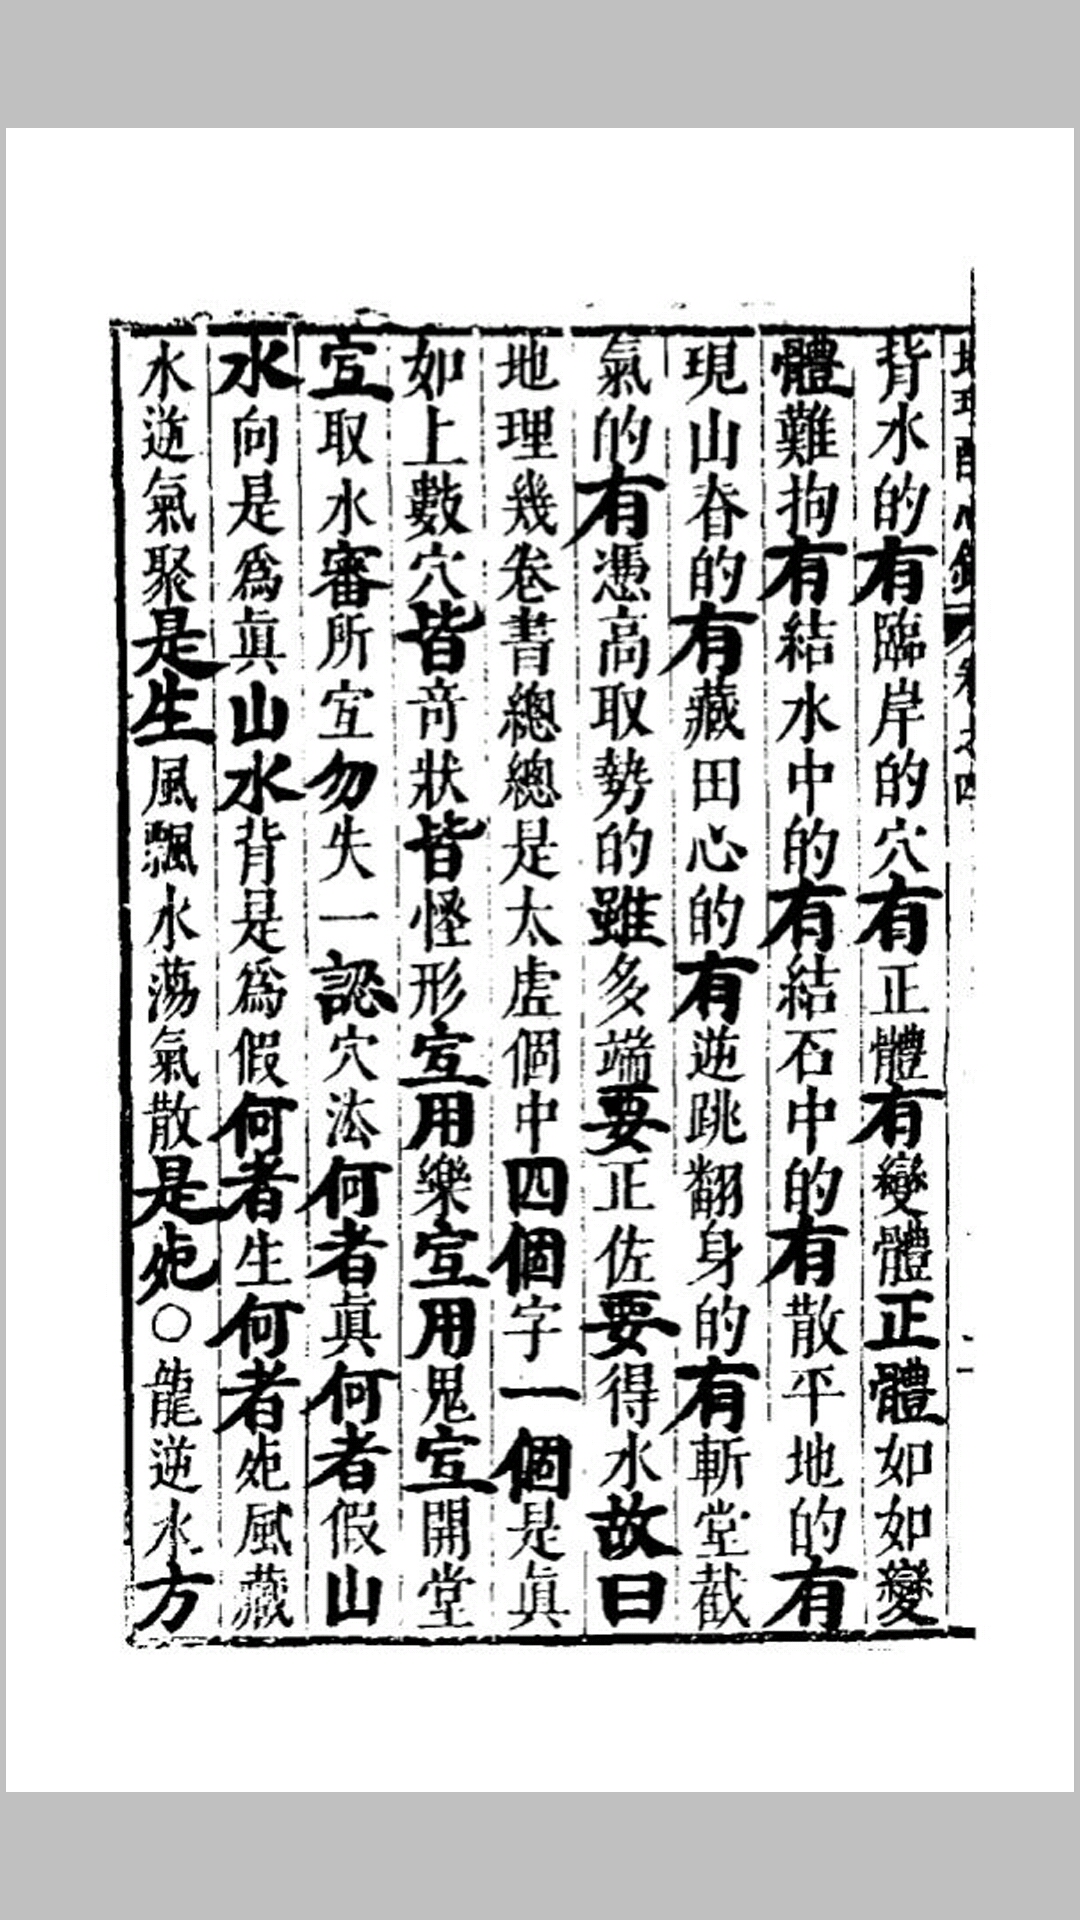 背水的有臨岸的穴有正體有變體正體如如變
體難拘有結水中的有結石中的有散平地的有
現山脊的有藏田心的有逆跳翻身的有斬堂截
氣的有憑高取勢的雖多端要正佐要得水故曰
地理幾卷書總總是太虛個中四個字一個是眞
如上數穴皆竒狀皆怪形宜用樂宜用鬼宜開堂
宜取水審所宜勿失一認穴法何者眞何者假山
水向是爲眞山水背是爲假何者生何者死風藏
水逆氣聚是生風飄水蕩氣散是死○龍逆水方